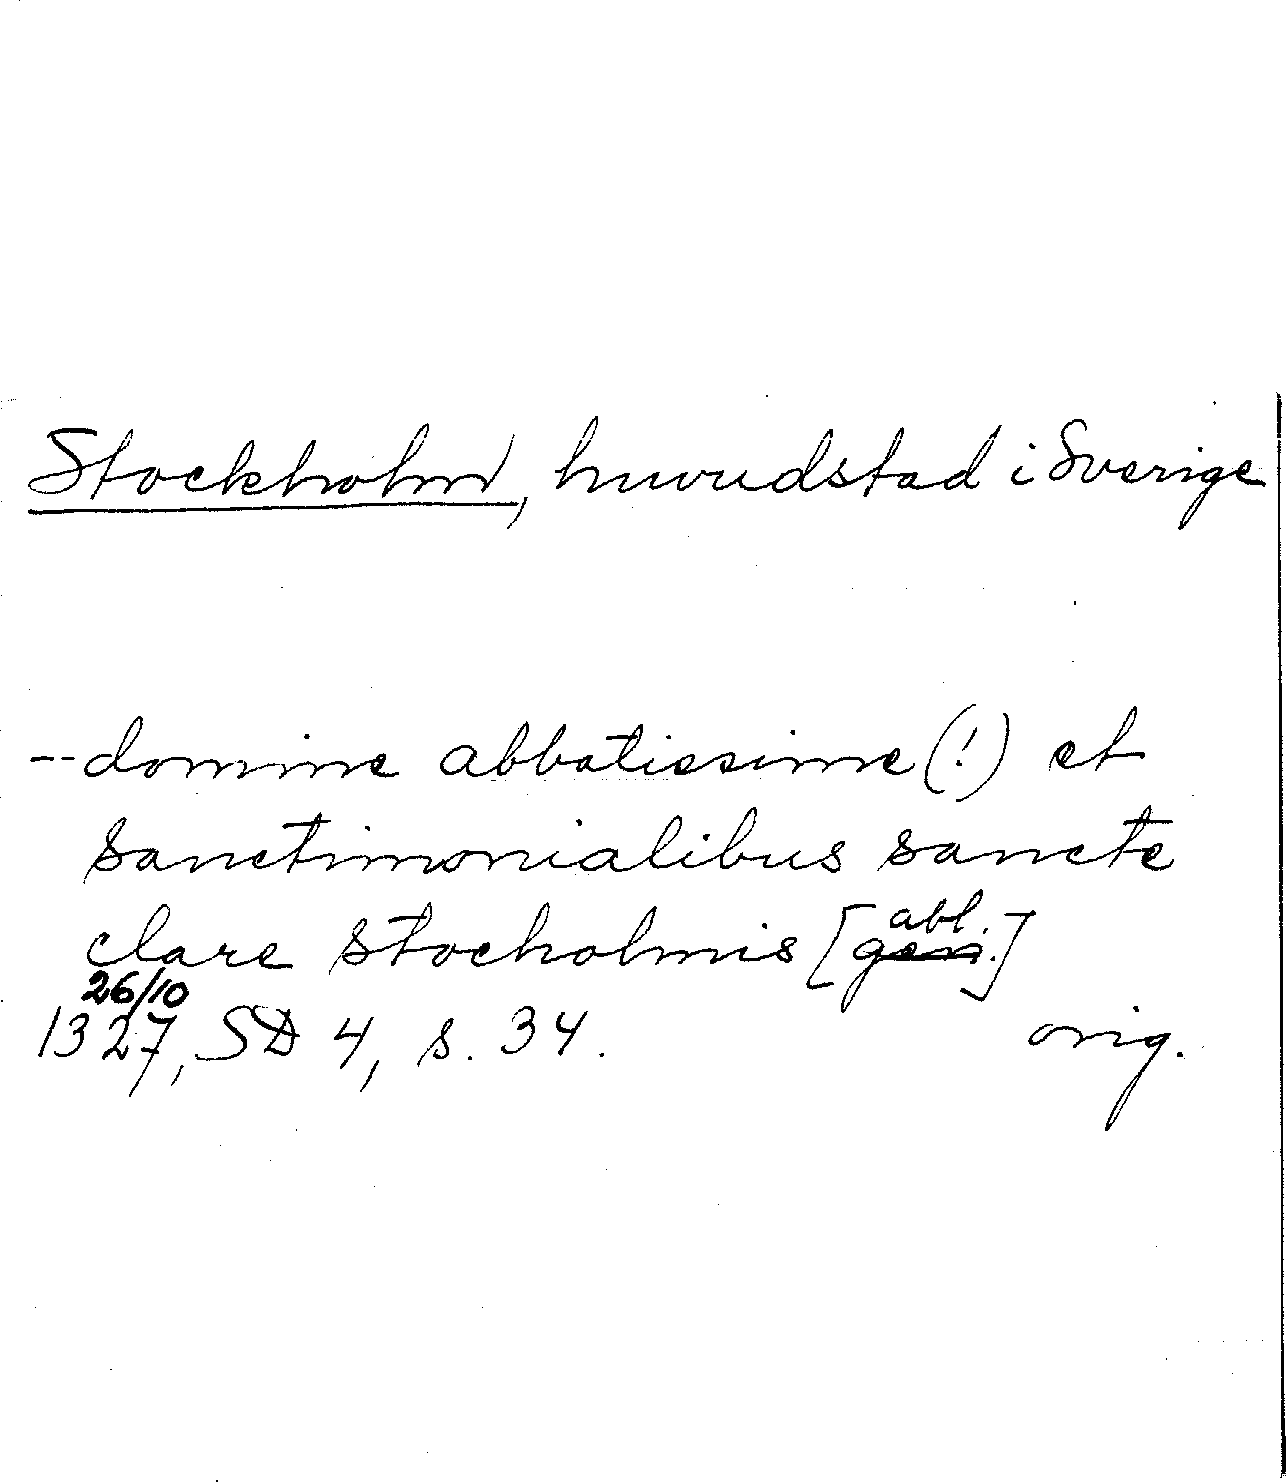 Stockholm, huvudstad i Sverige
-- domine abbatissime (!) et
sanctimonialibus sancte
clare stocholmis [gen. abl.]
26/10
1327, SD 4, s. 34. orig.